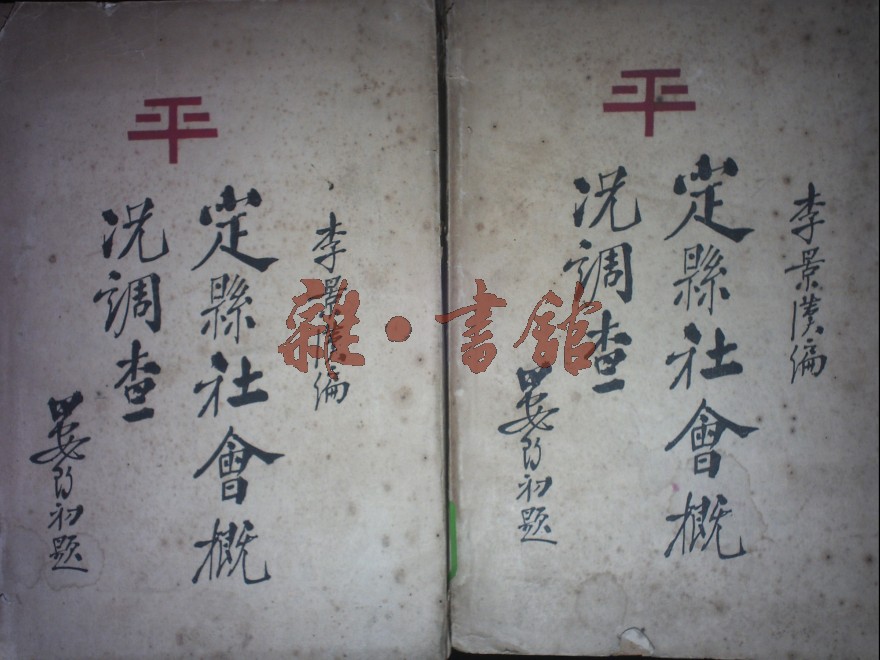 平
李景漢編
定縣社會概
况調查
晏阳初题
平
李景漢編
定縣社會概
况調查
晏阳初题
雜·書館